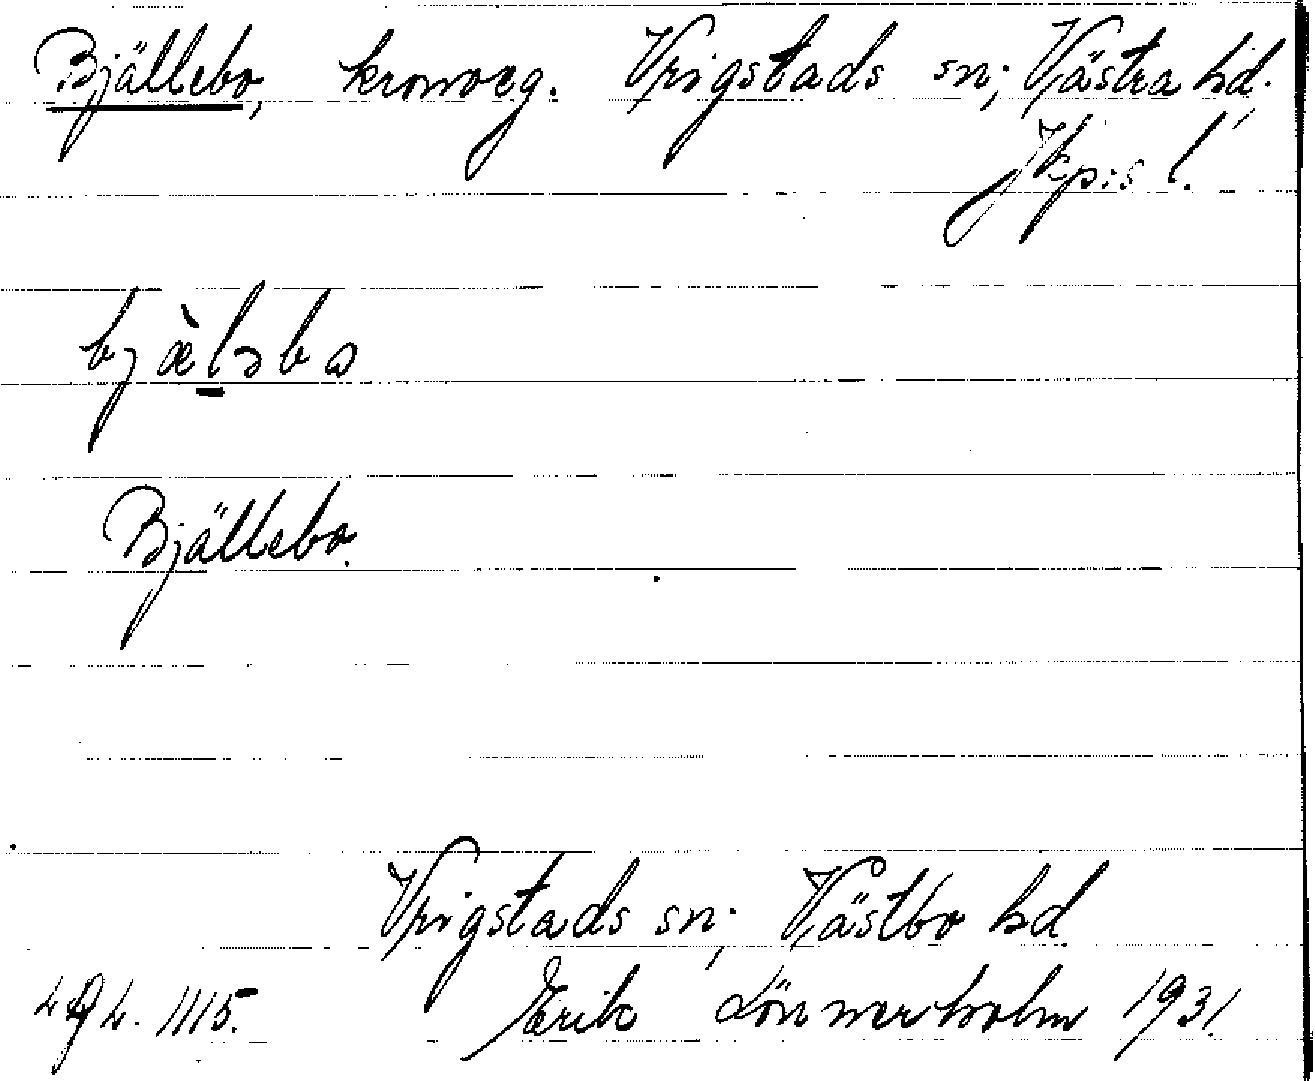 Bjällebo, kronoeg. Vrigstads sn; Västra hd.
Jkp:s l.
bjæ̀l̠əbo
Bjällebo.
Vrigstads sn; Västbo hd
Erik Lönnerholm 1931.
1115.